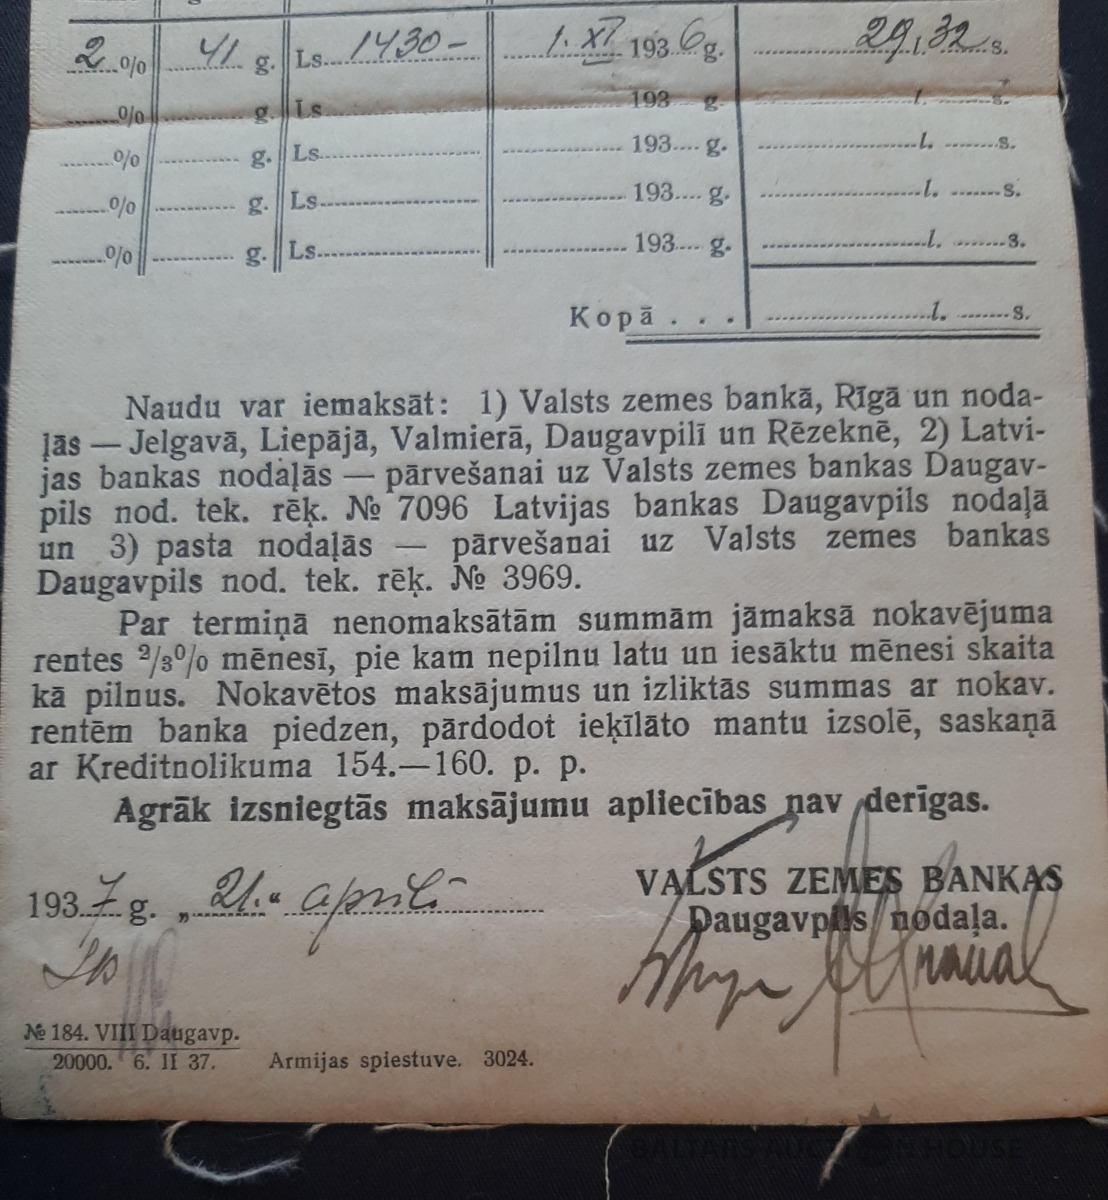 2 % 41 g. Ls. 1430- 1. XI 1936 g. 29 l. 32 s.
% g. Ls 193 g. l. s.
% g. Ls 193 g. l. s.
% g. Ls 193 g. l. s.
% g. Ls 193 g. l. s.
Kopā . . . l. s.
Naudu var iemaksāt: 1) Valsts zemes bankā, Rīgā un noda-
ļās — Jelgavā, Liepājā, Valmierā, Daugavpilī un Rēzeknē, 2) Latvi-
jas bankas nodaļās — pārvešanai uz Valsts zemes bankas Daugav-
pils nod. tek. rēķ. № 7096 Latvijas bankas Daugavpils nodaļā
un 3) pasta nodaļās — pārvešanai uz Valsts zemes bankas
Daugavpils nod. tek. rēķ. № 3969.
Par termiņā nenomaksātām summām jāmaksā nokavējuma
rentes ²/₃% mēnesī, pie kam nepilnu latu un iesāktu mēnesi skaita
kā pilnus. Nokavētos maksājumus un izliktās summas ar nokav.
rentēm banka piedzen, pārdodot ieķīlāto mantu izsolē, saskaņā
ar Kreditnolikuma 154.—160. p. p.
Agrāk izsniegtās maksājumu apliecības nav derīgas.
VALSTS ZEMES BANKAS
1937 g. „21." aprīlī
Daugavpils nodaļa.
№ 184. VIII Daugavp.
20000. 6. II 37. Armijas spiestuve. 3024.
BALTARS AUCTION HOUSE